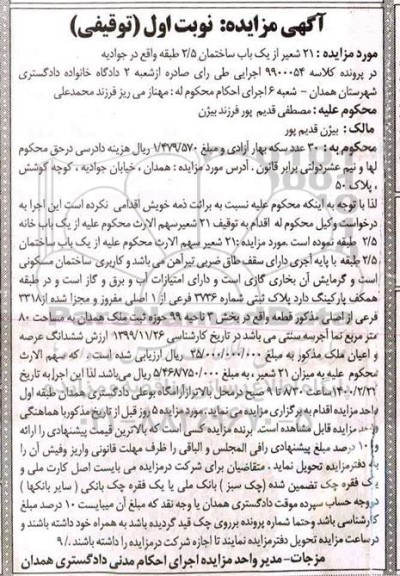 آگهی مزایده: نوبت اول (توقیفی)
مورد مزایده : ۲۱ شعیر از یک باب ساختمان ۲/۵ طبقه واقع در جوادیه
در پرونده کلاسه ۹۹۰۰۰۵۴ اجرایی طی رای صادره ازشعبه ۲ دادگاه خانواده دادگستری
شهرستان همدان - شعبه ۶ اجرای احکام محکوم له : مهناز می ریز فرزند محمدعلی
محکوم علیه : مصطفی قدیم پور فرزند بیژن
مالک : بیژن قدیم پور
محکوم به : ۳۰ عدد سکه بهار آزادی و مبلغ ۱/۴۷۹/۵۷۰ ریال هزینه دادرسی درحق محکوم
لها و نیم عشردولتی برابر قانون . آدرس مورد مزایده : همدان ، خیابان جوادیه ، کوچه کوشش
، پلاک ۵۰
لذا با توجه به اینکه محکوم علیه نسبت به برائت ذمه خویش اقدامی نکرده است این اجرا به
درخواست وکیل محکوم له اقدام به توقیف ۲۱ شعیرسهم الارث محکوم علیه از یک باب خانه
۲/۵ طبقه نموده است .مورد مزایده :۲۱ شعیر سهم الارث محکوم علیه از یک باب ساختمان
۲/۵ طبقه با پایه آجری دارای سقف طاق ضربی تیرآهن می باشد و کاربری ساختمان مسکونی
است و گرمایش آن بخاری گازی است و دارای امتیازات آب و برق و گاز است و در طبقه
همکف پارکینگ دارد پلاک ثبتی شماره ۳۷۳۶ فرعی از ۱ اصلی مفروز و مجزا شده از۳۳۱۸
فرعی از اصلی مذکور قطعه واقع در بخش ۳ ناحیه ۹۹ حوزه ثبت ملک همدان به مساحت ۸۰
متر مربع نما آجرسه سنتی می باشد در تاریخ کارشناسی ۱۳۹۹/۱۱/۲۶ ارزش ششدانگ عرصه
و اعیان ملک مذکور به مبلغ ۲۵/۰۰۰/۰۰۰/۰۰۰ ریال ارزیابی شده است . که سهم الارث
محکوم علیه به میزان ۲۱ شعیر ، به مبلغ ۵/۴۶۸۷۵۰/۰۰۰ ریال می باشد. لذا این اجرا به تاریخ
ساعت ۸:۳۰ تا ۹ صبح درمحل بالاتراز آرامگاه بوعلی دادگستری همدان طبقه اول
واحد مزایده اقدام به برگزاری مزایده می نماید. مورد مزایده ۵ روز قبل از تاریخ مذکور با هماهنگی
واحد مزایده قابل مشاهده است. برنده مزایده کسی است که بالاترین قیمت پیشنهادی را ارائه
و ۱۰ درصد مبلغ پیشنهادی رافی المجلس و الباقی را ظرف مهلت قانونی واریز وفیش آن را
به دفترمزایده تحویل نماید ، متقاضیان برای شرکت درمزایده می بایست اصل کارت ملی و
یک فقره چک تضمین شده (چک سبز ) بانک ملی یا یک فقره چک بانکی ( سایر بانکها )
دروجه حساب سپرده موقت دادگستری همدان یا وجه نقد که مبلغ آن میبایست ۱۰ درصد مبلغ
کارشناسی باشد وحتما شماره پرونده برروی چک قید گردیده باشد به همراه خود داشته باشند و
درساعت مزایده تحویل دفترمزایده نمایند تا اجازه شرکت درمزایده را داشته باشند ./ ۹
مزجات- مدیر واحد مزایده اجرای احکام مدنی دادگستری همدان